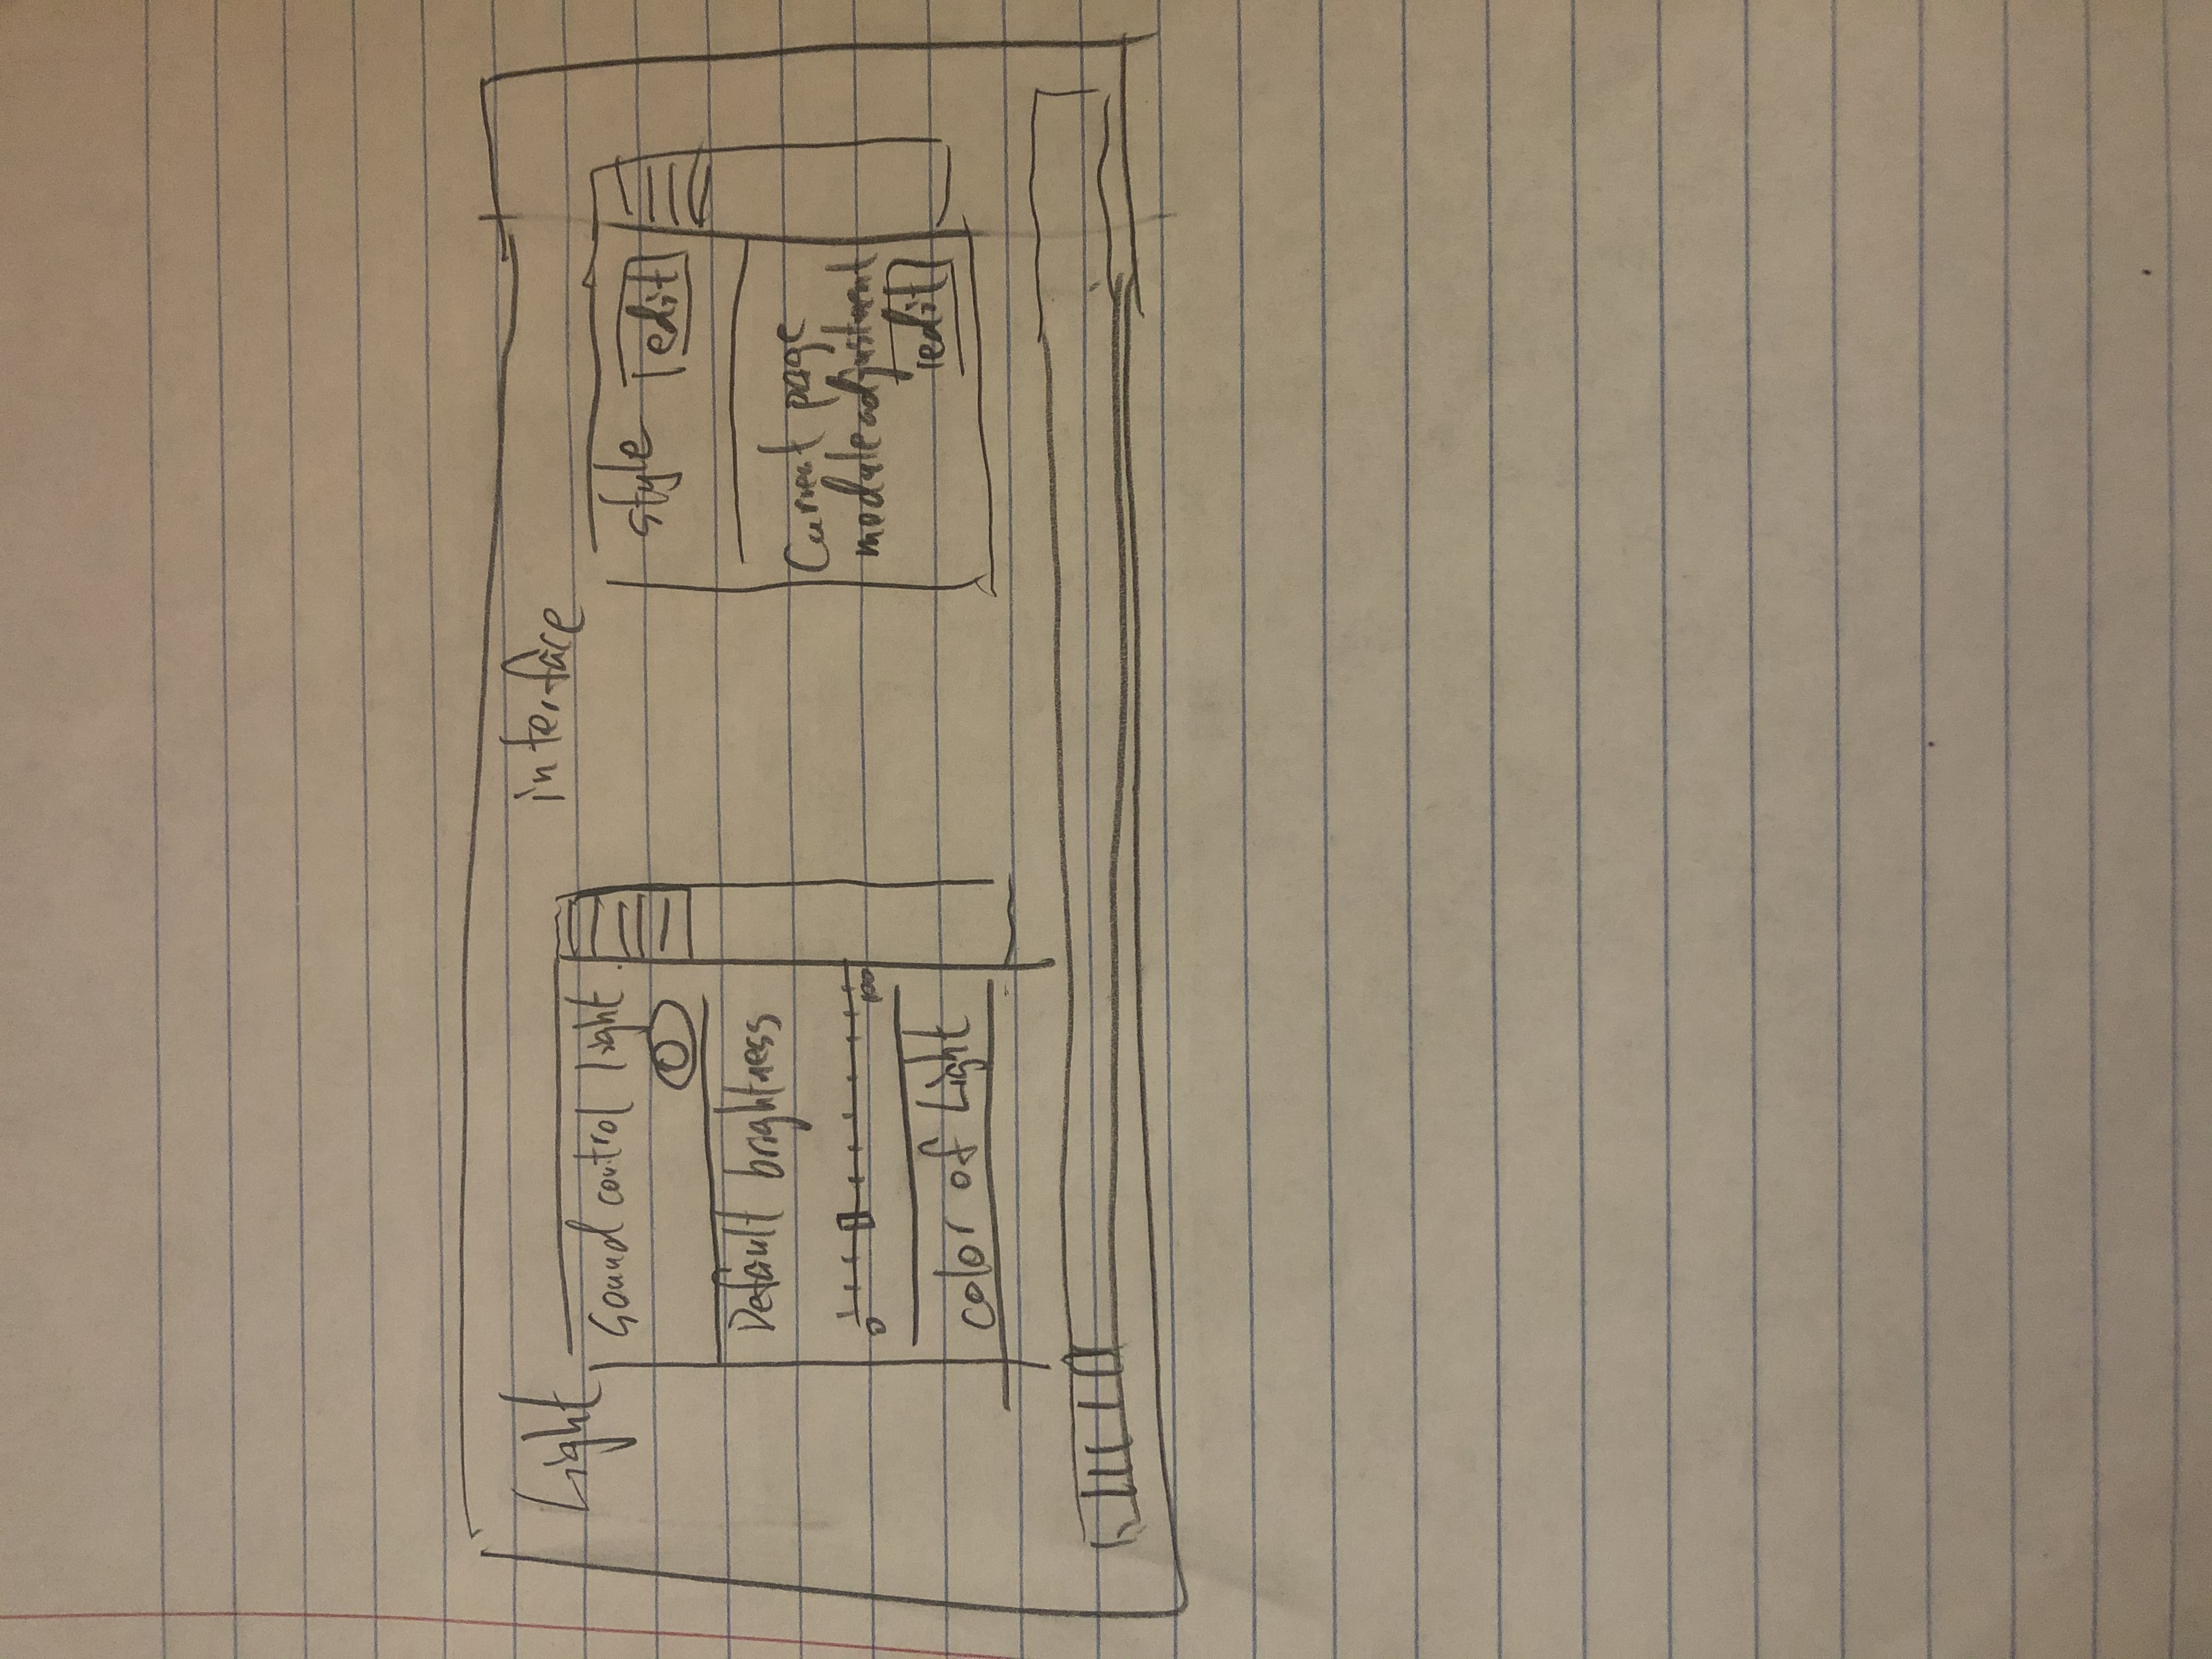 Light
Sound control light
Default brightness
0 100
color of Light
interface
style edit
Current page
module adjustment
edit